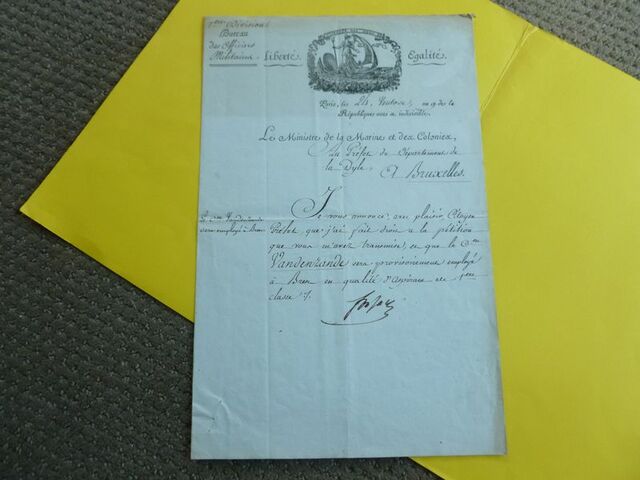 1ere Division
Bureau
des Officiers
Militaires
Liberté.
Egalité.
Paris, les 26 an 9 de la
République une et indivisible.
Le Ministre de la Marine et des Colonies,
au Préfet du Département de
la Dyle,
A Bruxelles.
Je vous annonce, avec plaisir, Citoyen
Préfet que j'ai fait droit à la pétition
que vous m'avez transmise, et que le Cen
Vandenzande sera provisoirement employé
à Brest en qualité d'aspirant de 1ere
classe
Le Cen Vandenzande
sera employé à Brest
forfait